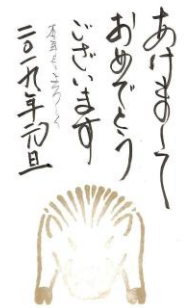 あけまして
おめでとう
ございます
二〇一九年元旦